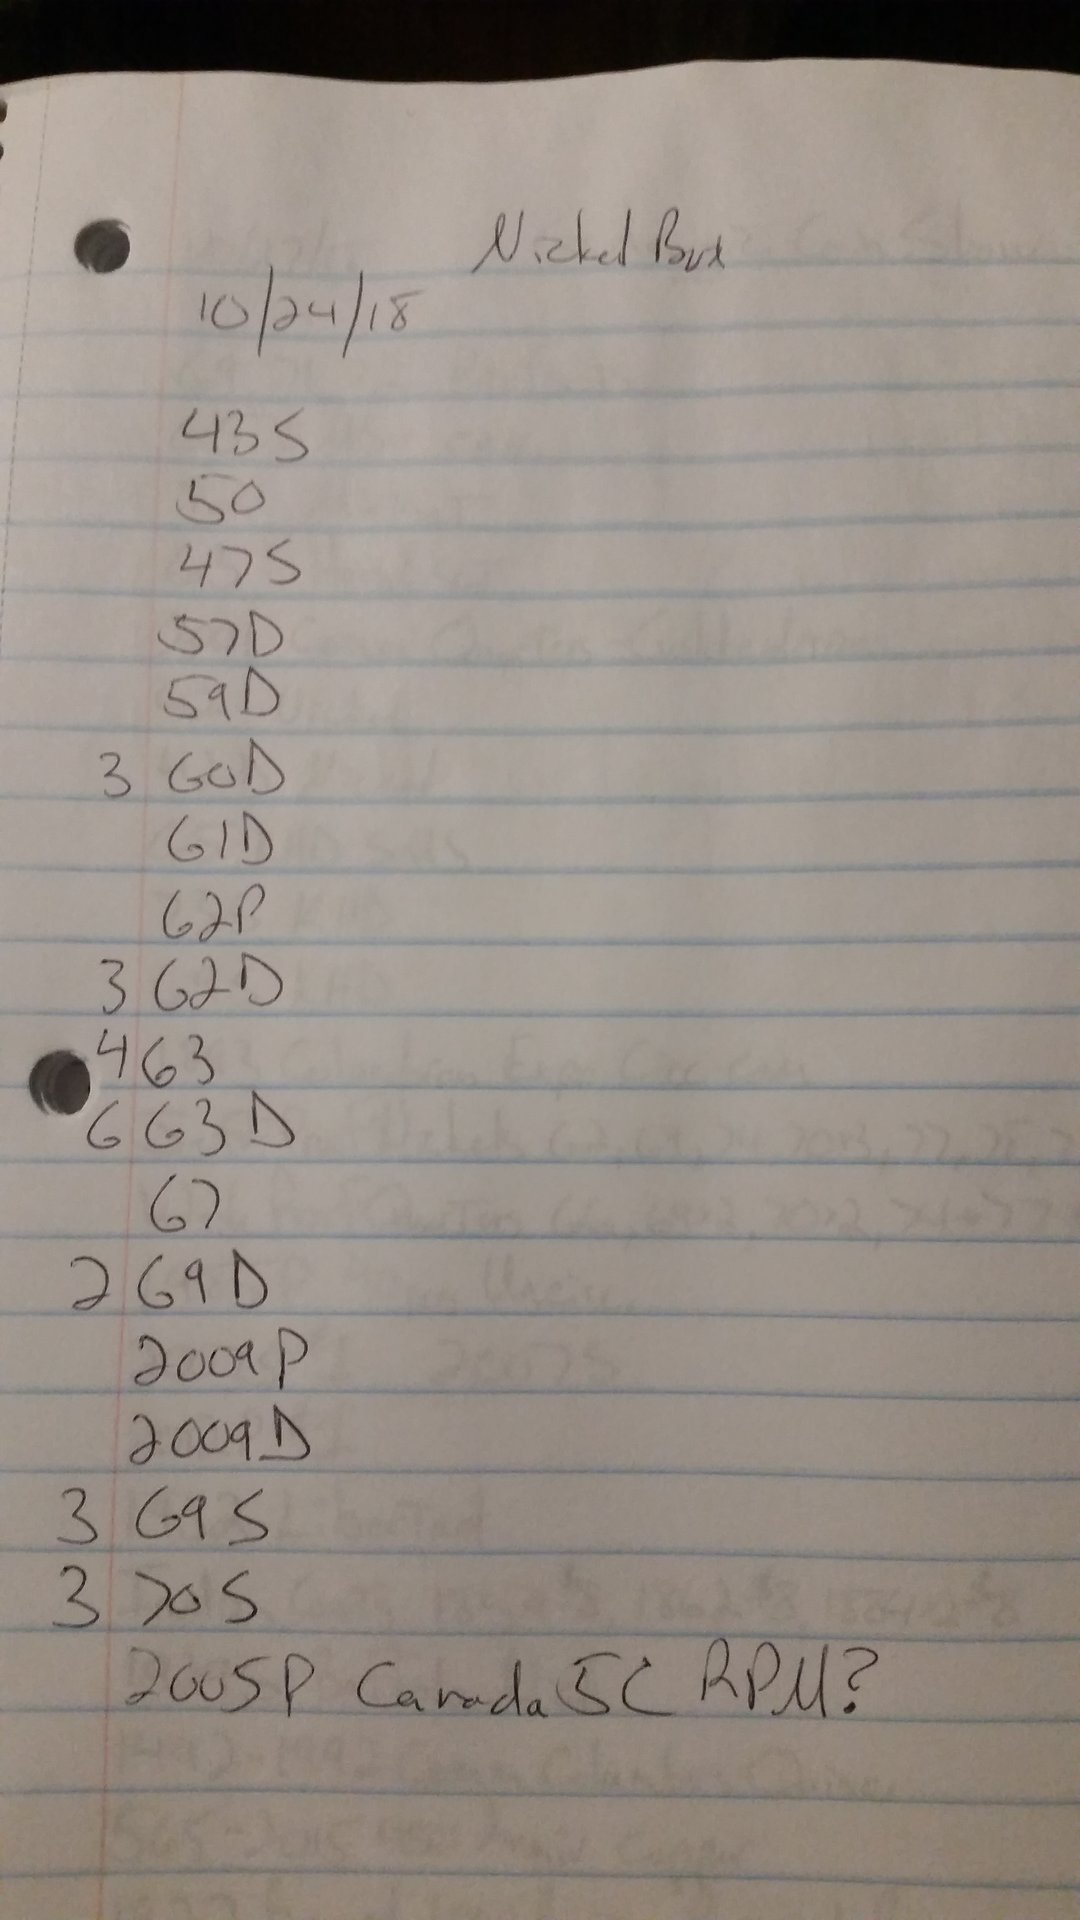 Nickel Box
10/24/18
43S
50
47S
57D
59D
3 60D
61D
62P
3 62D
4 63
6 63D
67
2 69D
2009P
2009D
3 69S
3 70S
2005P Canada 5C RPM?